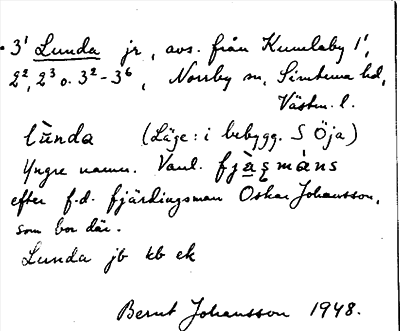 3¹ Lunda jr, avs. från Kumlaby 1¹,
2², 2³ o. 3²-3⁶, Norrby sn, Simtuna hd,
Västm. l.
lùnda (Läge: i bebygg. S Öja)
Yngre namn. Vanl. fjä̀ṣmàns
efter f.d. fjärdingsman Oskar Johansson,
som bor där.
Lunda jb kb ek
Bernt Johansson 1948.